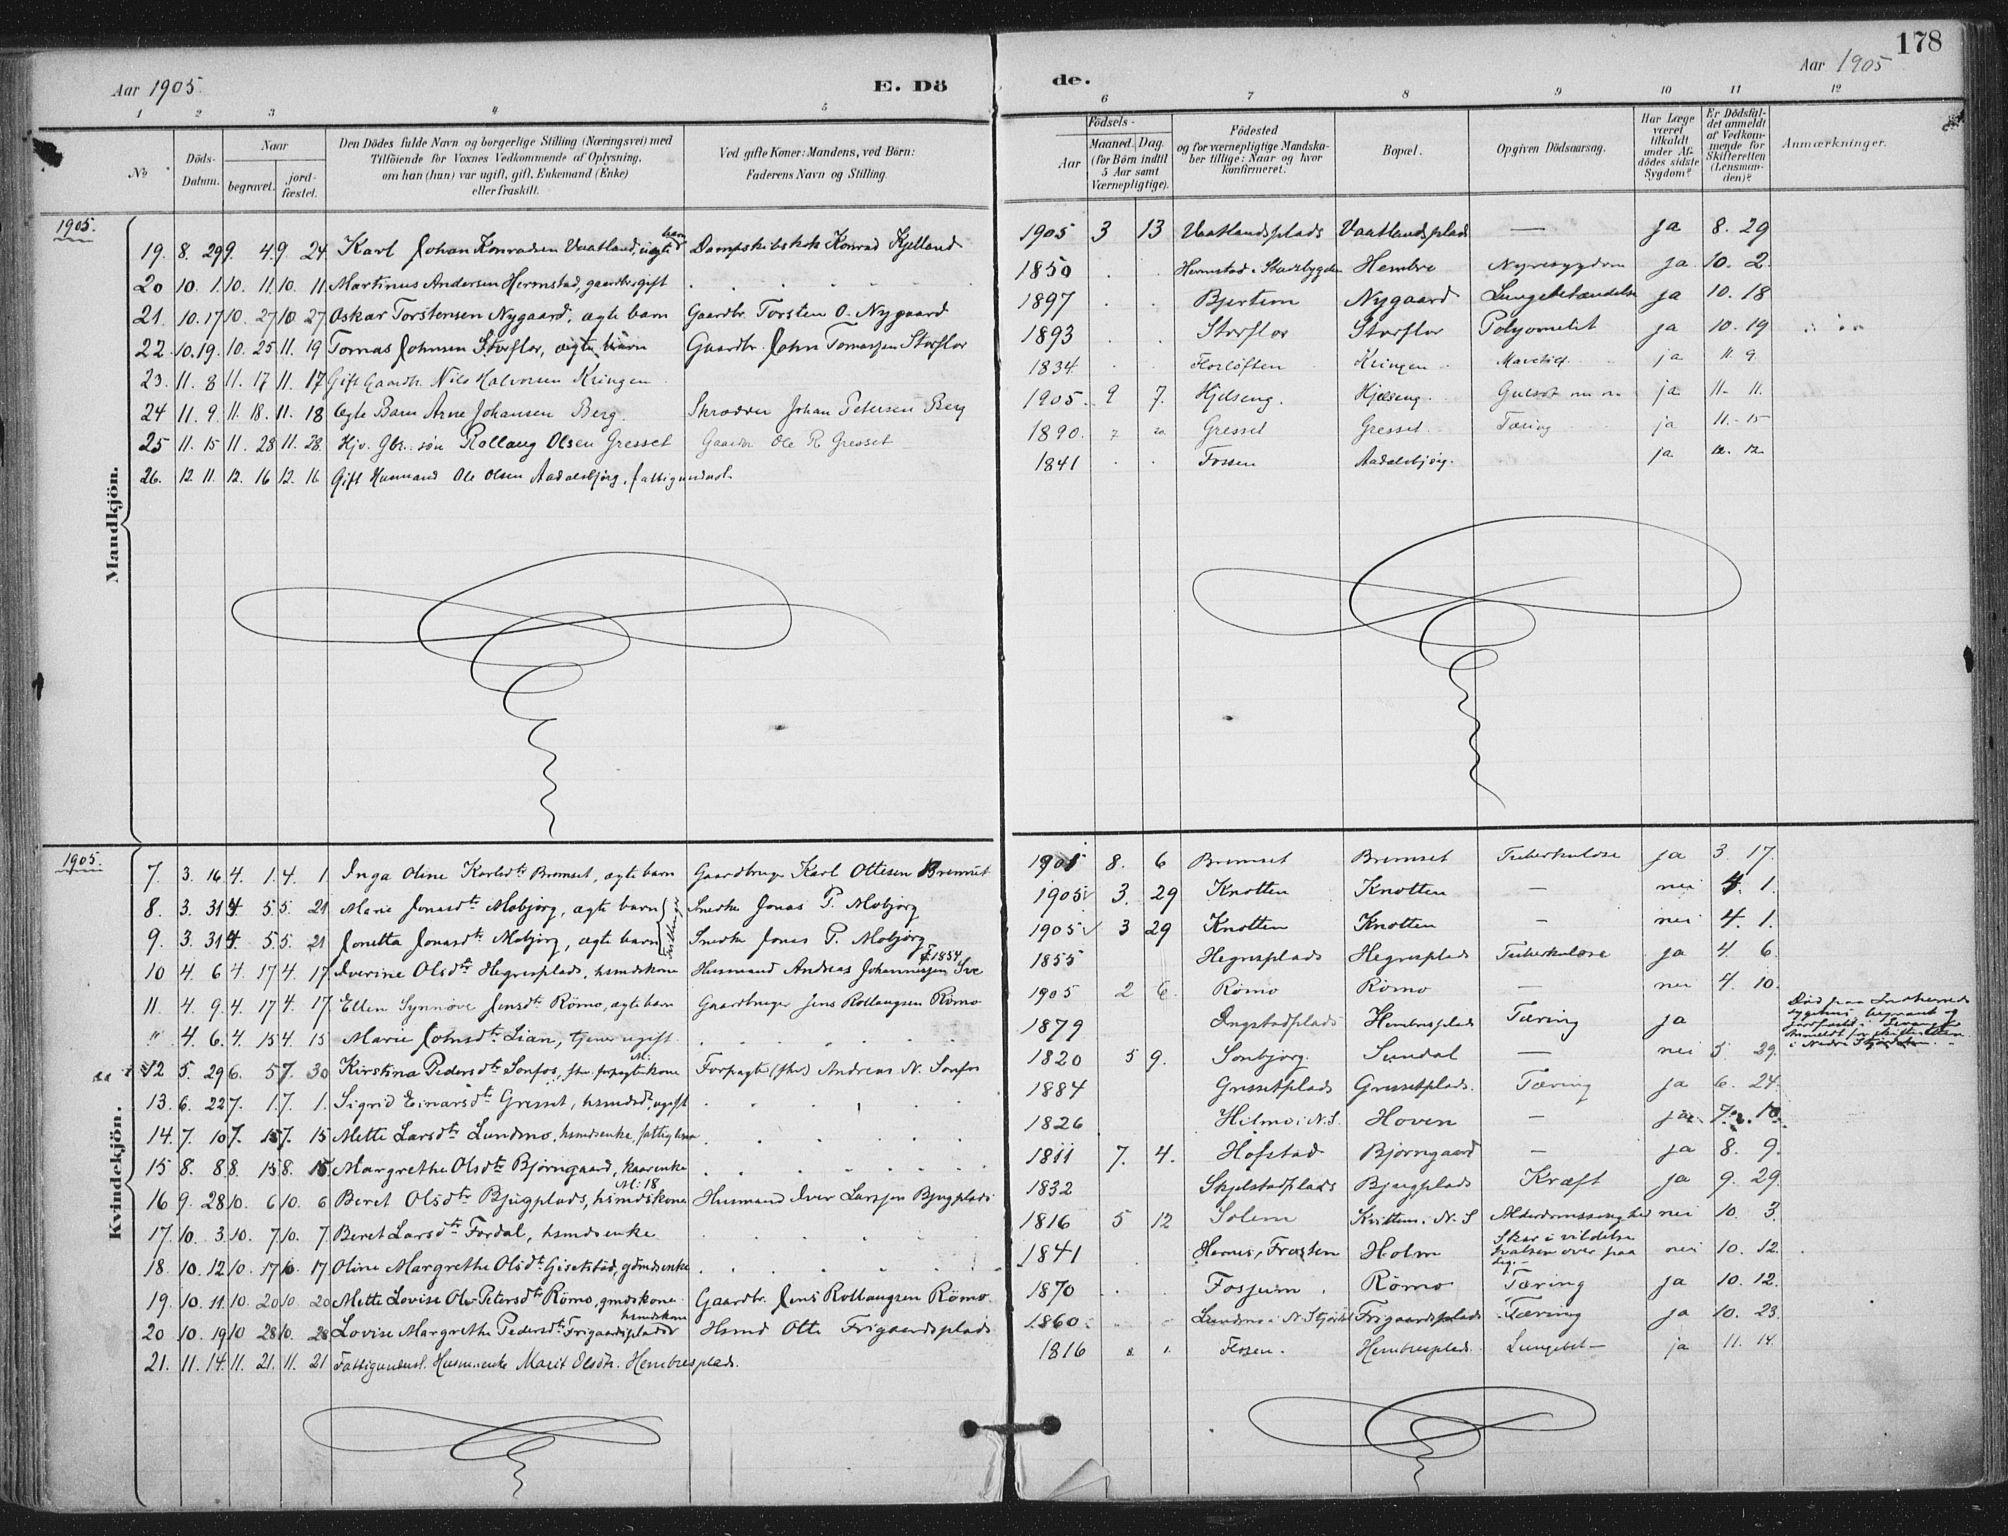 178
Aar 1905.
E. Dö
de.
Aar 1905
1 2 3 4 5
6 7 8 9 10 11 12
No
Döds-Datum.
Naar
begravet.
jordfæstet.
Den Dödes fulde Navn og borgerlige Stilling (Næringsvei) med
Tilföiende for Voxnes Vedkommende af Oplysning,
om han (hun) var ugift, gift, Enkemand (Enke)
eller fraskilt.
Ved gifte Koner: Mandens, ved Börn:
Faderens Navn og Stilling.
Födsels-
Aar
Maaned. Dag.
(for Börn indtil
5 Aar samt
Værnepligtige).
Födested
og for værnepligtige Mandska-
ber tillige: Naar og hvor
konfirmeret.
Bopæl.
Opgiven Dödsaarsag.
Har Læge
været
tilkaldt
under Af-
dödes sidste
Sygdom?
Er Dödsfal-
det anmeldt
af Vedkom-
mende for
Skifteretten
(Lensman-
den)?
Anmærkninger.
1905.
Mandkjön.
19. 8. 29 9. 4 9. 24 Karl Johan Konradsen Vaatland, ægte barn Dampskibskok Konrad Kjelland 1905 3 13 Vaatlandsplads Vaatlandsplads — ja 8. 29
20 10. 1. 10. 11 10. 11 Martinus Andersen Hermstad, gaardbr, gift 1850 Hermstad i Stadsbygden Hembre Nyresygdom ja 10. 2.
21. 10. 17 10. 27 10. 27 Oskar Torstensen Nygaard, ægte barn Gaardbr. Torsten O. Nygaard 1897 Bjertem Nygaard Lungebetændelse ja 10. 18
22. 10. 19. 10. 25 11. 19 Tomas Johnsen Storflor, ægte barn Gaardbr. John Tomassen Storflor 1893 Storflor Storflor Polyomelit ja 10. 19
23. 11. 8 11. 17 11. 17 Gift Gaardbr. Nils Halvorsen Kringen 1834. Florløften Kringen ja 11. 9.
24 11. 9. 11. 18. 11. 18 Ægte Barn Arne Johansen Berg. Skrædder Johan Petersen Berg 1905. 9 7. Hjelseng. Hjelseng. ja 11. 11.
25 11. 15 11. 28 11. 28. Hjv. Gbr. søn Rollaug Olsen Gresset Gaardbr Ole R. Gresset 1890. 7 20 Gresset Gresset. Tæring ja 11. 15
26. 12. 11. 12. 16 12. 16 Gift Husmand Ole Olsen Aadalsbjørg, fattigunderst. 1841 Fossen Aadalsbjørg. ja 12. 12.
1905.
Kvindekjön.
7. 3. 16 4. 1. 4. 1 Inga Oline Karlsdtr Bremset, ægte barn Gaardbruger Karl Ottesen Bremset 1901 8. 6 Bremset Bremset Tuberkulose ja 3. 17.
8. 3. 31 4. 5 5. 21 Marie Jonasdtr Mobjørg, ægte barn Snedker Jonas P. Mobjørg 1905 3. 29 Knotten Knotten — nei 4. 1.
9. 3. 31 4. 5 5. 21 Jonetta Jonasdtr Mobjørg, ægte barn Snedker Jonas P. Mobjørg 1905 3 29 Knotten Knotten — nei 4. 1.
10 4. 6 4. 17 4. 17 Iverine Olsdtr Hegresplads, hsmdskone Husmand Andreas Johannesen Sve f. 1854 1855 Hegresplads Hegresplads Tuberkulose ja 4. 6.
11. 4. 9. 4. 17 4. 17. Ellen Synnøve Jensdtr Rømo, ægte barn Gaardbruger Jens Rollaugsen Rømo 1905 2 6. Rømo Rømo — nei 4. 10.
" 4. 6. 4. 15 4. 15 Marie Johnsdtr Lian, tjener ugift 1879 Ingstadplads Hembresplads Tæring ja
12 5. 29 6. 5 7. 30 Kirstina Pedersdtr Sonfos, fhv. forpagterkone Forpagter (fhv.) Andreas N. Sonfos 1820 5 9. Sonbjørg. Sundal — nei 5. 29.
13. 6. 22 7. 1. 7. 1. Sigrid Einarsdtr Gresset, hsmdsd., ugift 1884 Gressetplads Gressetplads. Tæring ja 6. 24.
14. 7. 10 7. 15 7. 15 Mette Larsdtr Lundmo, hsmdsenke, fattiglem 1826 Hilmo i N.S. Hoven — ja 7. 10.
15 8. 8 8. 15 8. 15. Margrethe Olsdtr Bjørngaard, kaarenke 1811 7. 4. Hofstad Bjørngaard — ja 8. 9.
16 9. 28 10. 6 10. 6 Beret Olsdtr Bjugplads, hsmdskone Husmand Iver Larssen Bjugplads 1832 Skjelstadplads Bjugplads Kræft ja 9. 29.
17. 10. 3. 10. 7 10. 7. Beret Larsdtr Fordal, hsmdsenke 1816 5 12 Solem i N. S Alderdomssvaghed nei 10. 3.
18. 10. 12 10. 17 10. 17 Oline Margrethe Olsdtr Gisetstad, gdmdsenke 1841 Hernes, Frosten Holm Skar i vildelse halsen over paa sig. — nei 10. 12.
19. 10. 11. 10. 20 10. 20 Mette Lovise Ole Petersdtr Rømo, gmdskone Gaardbr. Jens Rollaugsen Rømo. 1870 Fosjum Rømo Tæring ja 10. 12.
20 10. 19 10 28 10. 28 Lovise Margrethe Pedersdtr Frigaardsplads hsmdskone Hsmd Otte Frigaardsplads 1860 Lundmo i N. Stjørdal Frigaardsplads Tæring ja 10. 23.
21. 11. 14. 11. 21. 11. 21 Fattigunderst. Husm.enke Marit Olsdtr. Hembresplads. 1816 8. 1. Flosen. Hembresplads. Lungebet— ja 11. 14.